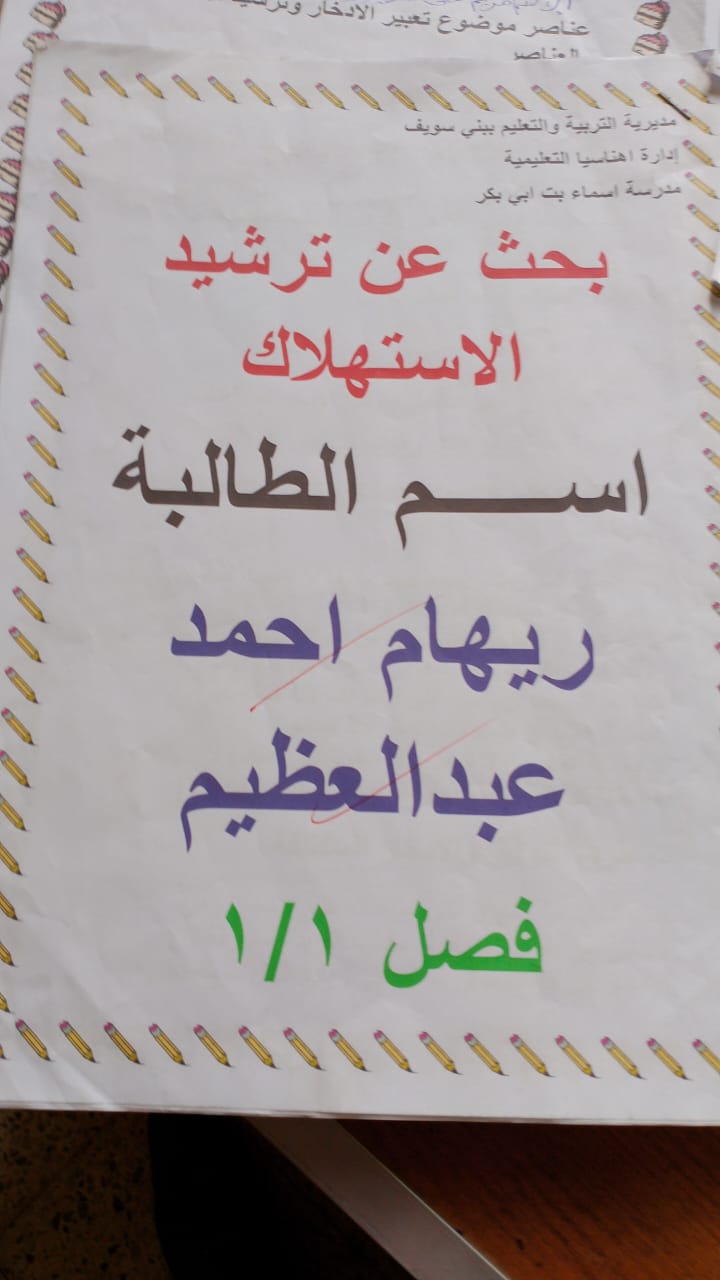 عناصر موضوع تعبير الادخار وترشيد
العناصر
مديرية التربية والتعليم ببني سويف
إدارة اهناسيا التعليمية
مدرسة اسماء بت ابي بكر
بحث عن ترشيد
الاستهلاك
اســــم الطالبة
ريهام احمد
عبدالعظيم
فصل ١/١